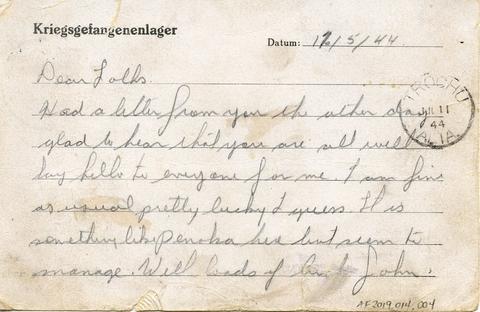 Kriegsgefangenenlager
Datum: 17/5/44.
Dear Folks.
Had a letter from you the other day
glad to hear that you are all well
say hello to everyone for me. I am fine
as usual pretty lucky I guess. It is
something like Penoka here but seem to
manage. Well loads of luck John.
TROCHU
JUL 11
44
ALTA.
AF2019.014.004